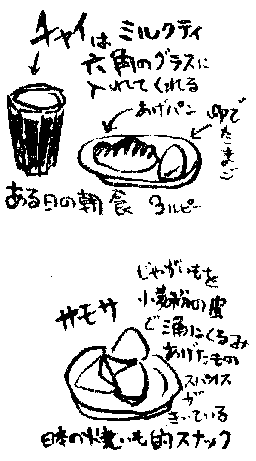 チャイはミルクティ
六角のグラスに
入れてくれる
あげパン
ゆでたまご
ある日の朝食 3ルピー
サモサ
じゃがいもを
小麦粉の皮
で三角にくるみ
あげたもの
スパイス
が
きいている
日本の焼いも的スナック